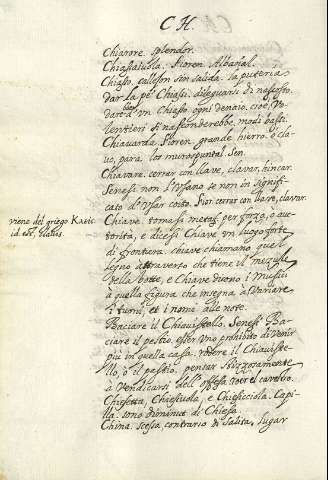 C H.
Chiarore. splendor.
Chiassaiuola. Fioren. Albañal.
Chiasso. callejon sin salida. la puteria
dar la pe' Chiassi. dileguarsi di nascosto.
dare in un Chiasso ogni denaio. cioè, Vo-
lentieri si nasconderebbe. modi bassi.
Chiavarda. Fioren. grande hierro, o cla-
uo, para los
Chiavare. cerrar con llave, clavar, hincar.
Senesi non l'usano se non in signifi-
cato d'usar coito. Fior. cerrar con llave, clavar.
Chiave. tomasi metaf. per forza, o au-
torità, e dicesi Chiave un luogo forte
di frontiera. chiave chiamano quel
legno attraverso che tiene il mezule
della botte, e Chiave dicono i Musici
a quella figura che insegna à Variare
i tuoni, et i nomi alle note.
viene del griego
id. est,
Baciare il Chiavistello. Senesi Ba-
ciare il pestio. esser uno prohibito di Venir
più in quella casa. rodere il Chiavistel-
lo, o il pestio. pensar
à Vendicarsi dell'offesa
Chiesetta, Chiesiuola, e Chiesicciola. Capi-
lla. sono diminut. di Chiesa.
China. scesa, contrario di Salita, lugar